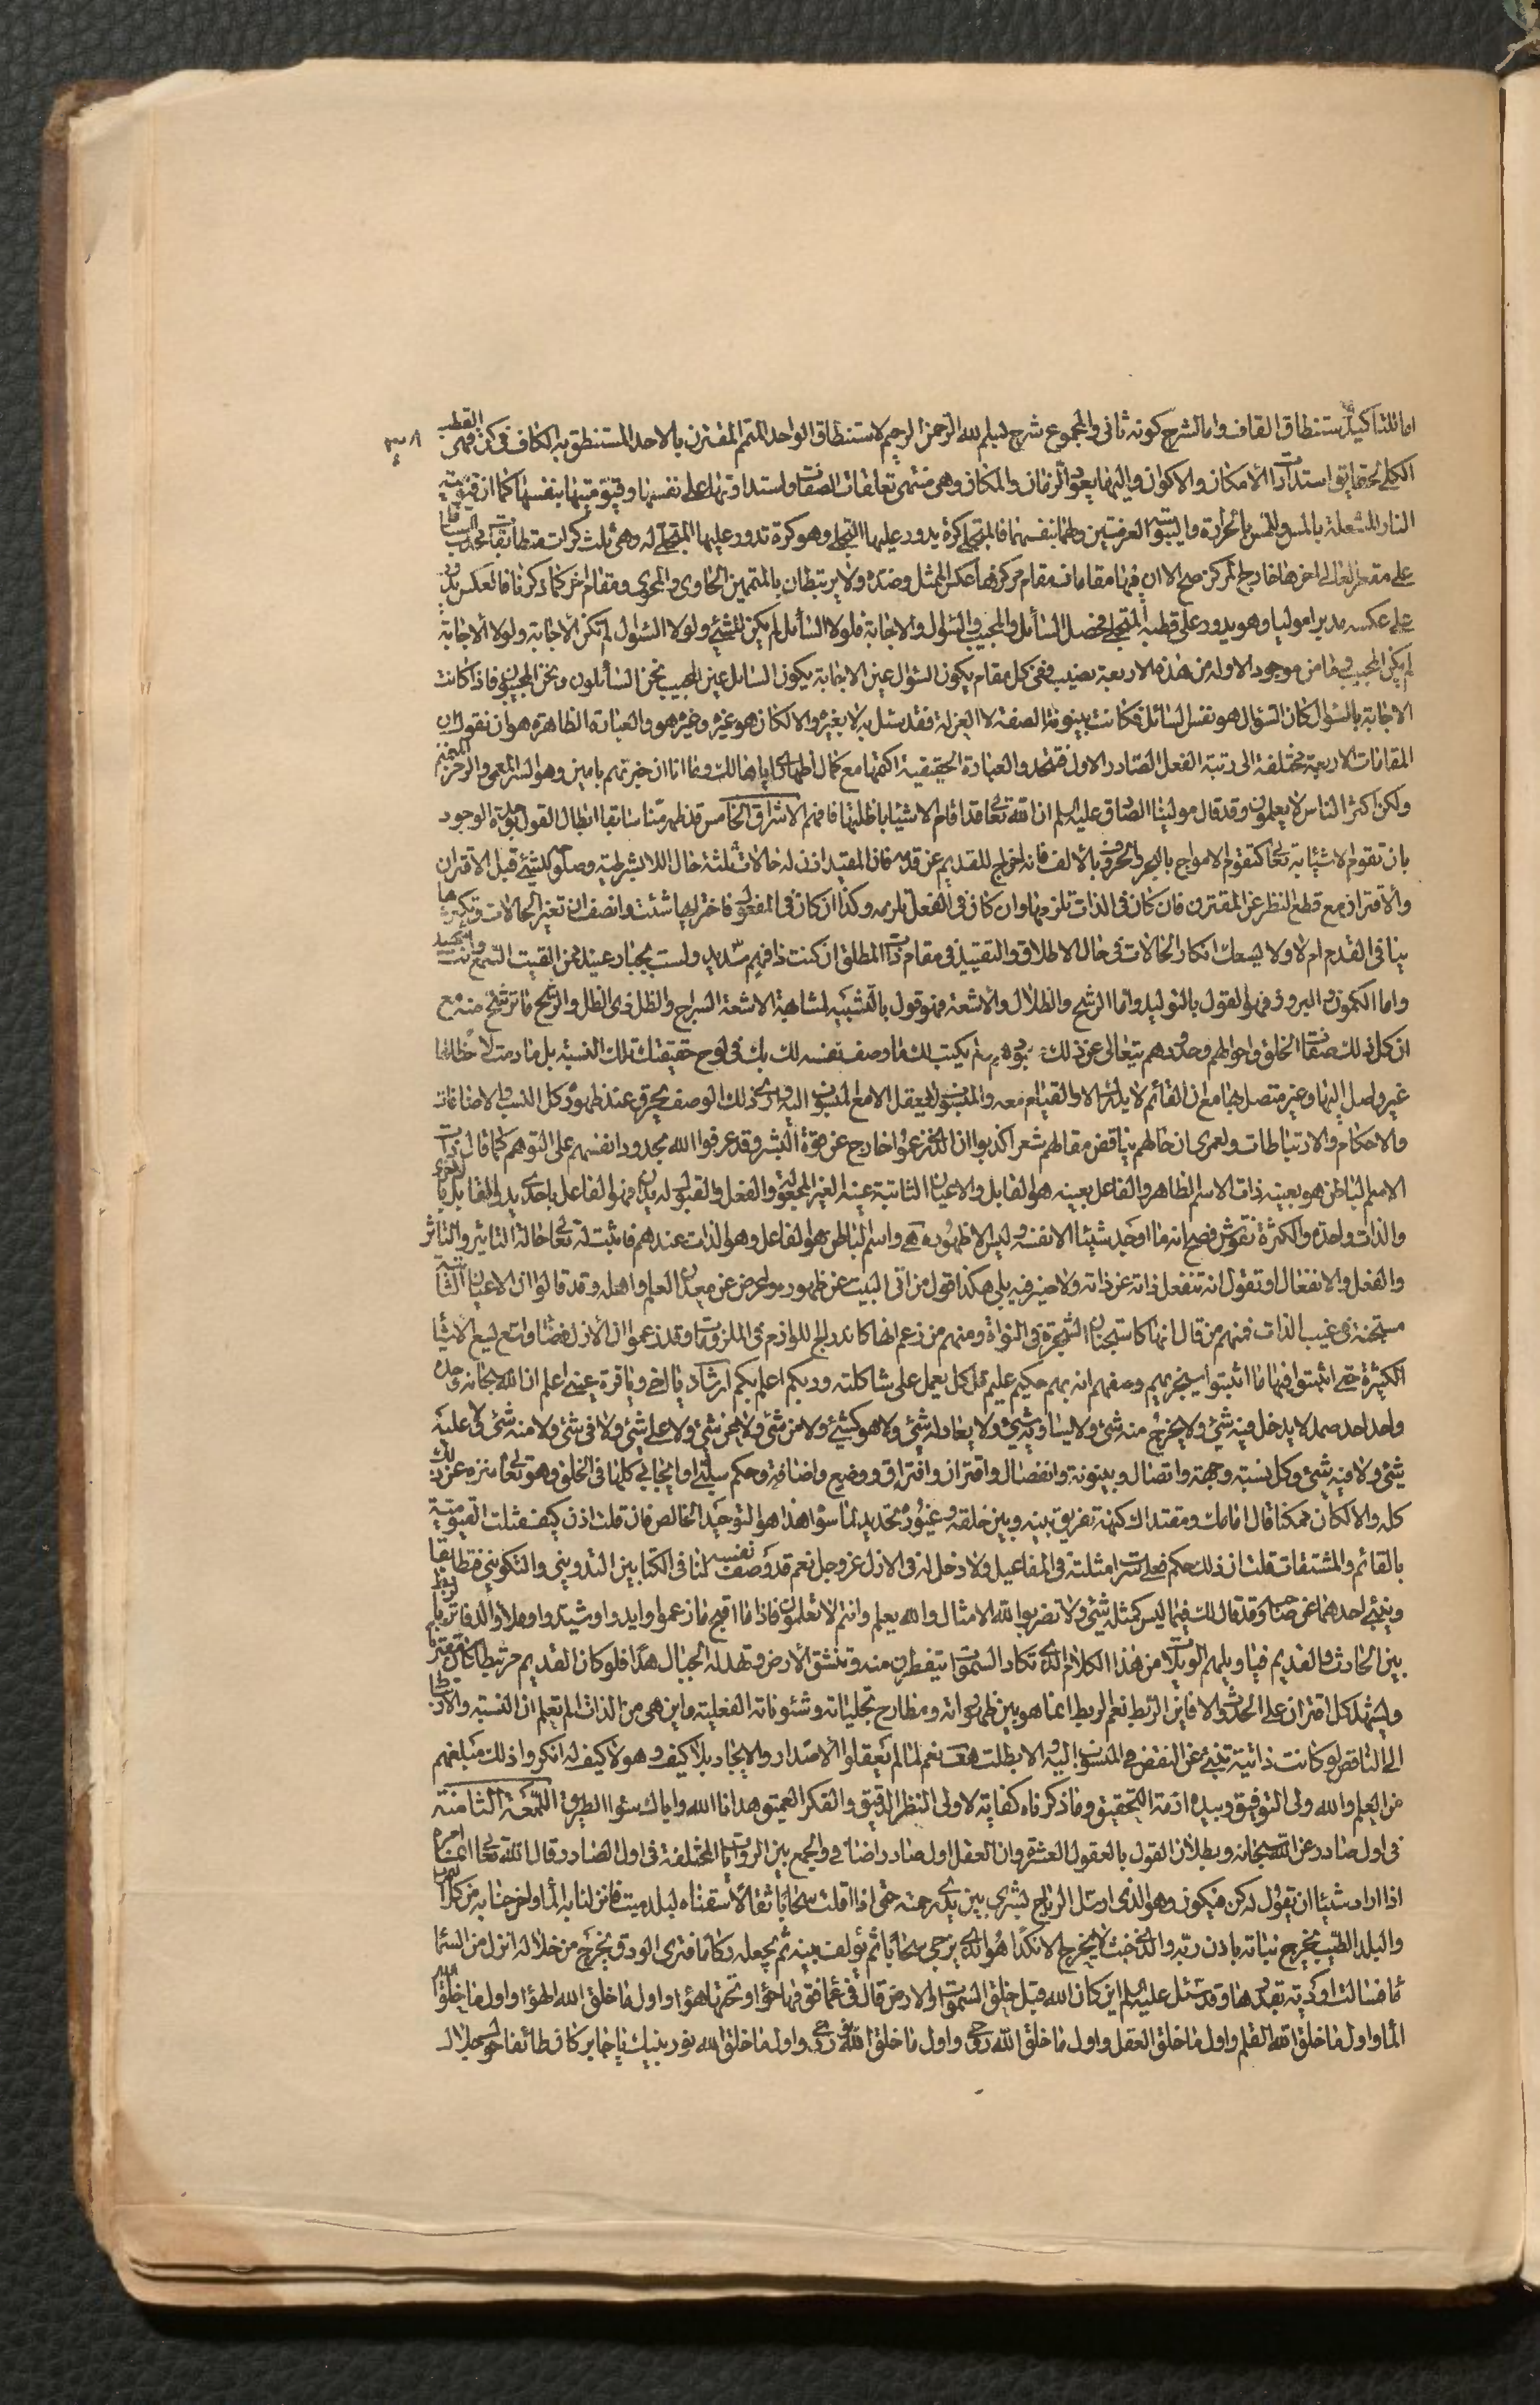 اما للتاكيد يستنطاق القاف واما لشرح كونه ثانى والمجموع شرح لبسم الله الرحمن الرحيم لاستنطاق الواحد المتمم المقترن بالاحد المستنطق به الكاف فى كن فهى القطب
الكلى تحققا استدارا الامكان والاكوان واليها يعود الزمان والمكان وهى منتهى تعلقات الصفات واستدارتها على نفسها وقيوميتها بنفسها كما ان قيومية
النار المشعلة بالمس والمس بالحرارة فالمتجلى كرة يدور عليها التجلى وهو كرة تدور عليها المتجلى له وهى ثلث كرات
على مقعر العالى اخرها خارج المركز صح الا ان فيها مقامات مقام مركزها عكس الممثل وضده ولا يرتبطان بالمتممين الحاوى والمحوى ومقام اخر كما ذكرنا فالعكس يدور
على عكسه مدبرا موليا وهو يدور على قطبه المتجلى فحصل السائل والمجيب والسؤال والاجابة فلولا السائل لم يكن الشئ ولولا السؤال لم تكن الاجابة ولولا الاجابة
لم يكن المجيب فما من موجود الا وله من هذه الاربعة نصيب ففى كل مقام يكون السؤال عين الاجابة يكون السائل عين المجيب نحن السائلون ونحن المجيبون فاذا كانت
الاجابة بالسؤال كان السؤال هو نفس السائل فكانت بينونة الصفة لا العزلة فقد سئل به لا بغيره والا لكان هو غيره وغيره هو والعبارة الظاهرة هو ان نقول ان
المقامات الاربعة مختلفة الى رتبة الفعل الصادر الاول فتتحد والعبارة الحقيقية اكتمها مع كمال اظهارى اياها لك وما انا ان خبرتهم بامين وهو السر المعمى والرمز المنمنم
ولكن اكثر الناس لا يعلمون وقد قال مولينا الصادق عليه السلم ان الله تعالى قد اقام الاشيا باظلتها فافهم الاشراق الخامس قد ظهر مما سابقا ابطال القول بوحدة الوجود
بان تقوم الاشيا به تعالى كتقوم الامواج بالبحر والحروف بالالف فانه اخراج للقديم عن قدمه فان المقيد اذن له حالات ثلثة حال اللا بشرطية وصلوح للشئ قبل الاقتران
والاقتران مع قطع النظر عن المقترن فان كان فى الذات تلزمها وان كان فى الفعل تلزمه وكذا ان كان فى المفعول فاختر ايها شئت وانصف ان تغير الحالات وتكثرها
ينافى القدم ام لا ولا يسعك انكار الحالات فى حال الاطلاق والتقييد فى مقام ذات المطلق ان كنت ذا فهم سديد ولست بجبار عنيد ممن القيت السمع وانت شهيد
واما الكمون والبروز فهو القول بالتوليد واما الرشح والظلال والاشعة فهو قول بالتشبيه لمشابهة الاشعة السراج والظل ذى الظل والرشح ما ترشح منه مع
ان كل ذلك صفات الخلق واحوالهم وحدودهم يتعالى عن ذلك ربوبيته لم يكتب لك مما وصف نفسه لك بك فى لوح حقيقتك تلك النسبة بل ما دمت ملاحظا لها
غير واصل اليها وغير متصل بها مع ان القائم لا يدرك الا والقيام معه والمنسوب لا يعقل الا مع المنسوب اليه وترى ذلك الوصف يحترق عند ظهوره كل النسب والاضافات
والاحكام والارتباطات ولعمرى ان حالهم يناقض مقالهم شعر اكذبوا ان الذى زعموا خارج عن قوة البشر وقد عرفوا الله بحدود انفسهم على التوهم كما قال ان ذات
الاسم الباطن هو بعينه ذات الاسم الظاهر والفاعل بعينه هو القابل والاعيان الثابتة عينه الغير المجعولة والفعل والقبول له يدان فهو الفاعل باحدى يديه والقابل بالاخرى
والذات واحدة والكثرة نقوش فصح انه ما اوجد شيئا الا نفسه وليس الا ظهوره هى واسم الباطن هو الفاعل وهو الذات عندهم فاثبت له تعالى حالة التاثير والتاثر
والفعل والانفعال او تقول انه تنفعل ذاته عن ذاته ولا ضير فيه بلى هكذا قول من اتى البيت من ظهوره واعرض عن معدن العلم واهله وقد قالوا ان الاعيان الثابتة
مستجنة فى غيب الذات فمنهم من قال انها كاستجنان الشجرة فى النواة ومنهم من زعم انها كاندراج اللوازم فى الملزومات وقد زعموا ان الازل فضاء واسع ليسع الاشيا
الكثيرة حتى اثبتوا فيها ما اثبتوا سيجزيهم وصفهم انه بهم حكيم عليم قل كل يعمل على شاكلته وربكم اعلم بكم ارشاد يا اخى ويا قرة عينى اعلم ان الله سبحانه وحده
واحد احد صمد لا يدخل فيه شئ ولا يخرج منه شئ ولا يساويه شئ ولا يعادله شئ ولا هو كشئ ولا من شئ ولا عن شئ ولا على شئ ولا فى شئ ولا منه شئ ولا عليه
شئ ولا فيه شئ وكل نسبة وجهة واتصال وبينونة وانفصال واقتران وافتراق ووضع واضافة وحكم سلبى او ايجابى كلها فى الخلق وهو تعالى منزه عن ذلك
كله والا لكان ممكنا قال امامك ومقتداك كنهه تفريق بينه وبين خلقه وغيوره تحديد لما سواه هذا هو التوحيد الخالص فان قلت اذن كيف مثلت القيومية
بالقائم والمشتقات قلت ان ذلك حكم امثلته فى المفاعيل ولا دخل له فى الازل عز وجل نعم قد وصف نفسه لنا فى الكتابين التدوينى والتكوينى فتطابقا
وينبئ احدهما عن صاحبه وقد قال لك فيها ليس كمثله شئ ولا تضربوا لله الامثال والله يعلم وانتم لا تعلمون فاذا ما اقبح ما زعموا وايدوا وشيدوا وملاوا الدفاتر بالربط
بين الحادث والقديم فيا ويلهم الويل من هذا الكلام الذى تكاد السموات يتفطرن منه وتنشق الارض وتهد له الجبال هدا فلو كان القديم مرتبطا كان مقترنا
وليشهد كل اقتران على الحدوث والا فاين الربط نعم الربط انما هو بين ظهوراته ومطارح تجلياته وشئوناته الفعلية واين هى من الذات الم تعلم ان النسبة والارتباط
الى الناقص لو كانت ذاتية تنبئ عن النقص فى المنسوب اليه والا بطلت هف نعم لما لم يعقلوا الاصدار والايجاد بلا كيف وهو لا كيف له انكروا ذلك مبلغهم
من العلم والله ولى التوفيق وبيده ازمة التحقيق وما ذكرناه كفاية لاولى النظر الدقيق والفكر العميق هدانا الله واياك سواء الطريق اللمعة الثامنة
فى اول صادر عن الله سبحانه وبطلان القول بالعقول العشرة وان العقل اول صادر اضافى والجمع بين الروايات المختلفة فى اول الصادر قال الله تعالى انما امره
اذا اراد شيئا ان يقول له كن فيكون وهو الذى ارسل الرياح بشرى بين يدى رحمته حتى اذا اقلت سحابا ثقالا سقناه لبلد ميت فانزلنا به الماء واخرجنا به من كل الثمرات
والبلد الطيب يخرج نباته باذن ربه والذى خبث لا يخرج الا نكدا هو الذى يزجى سحابا ثم يؤلف بينه ثم يجعله ركاما فترى الودق يخرج من خلاله انزل من السماء
ماء فسالت اودية بقدرها وقد سئل عليه السلم اين كان الله قبل خلق السموات والارض قال فى عماء فوقها هواء وتحتها هواء واول ما خلق الله الهواء واول ما خلق الله
الماء واول ما خلق الله القلم واول ما خلق العقل واول ما خلق الله روحى واول ما خلق الله روحى واول ما خلق الله نور نبيك يا جابر كان طائفا حول جلال